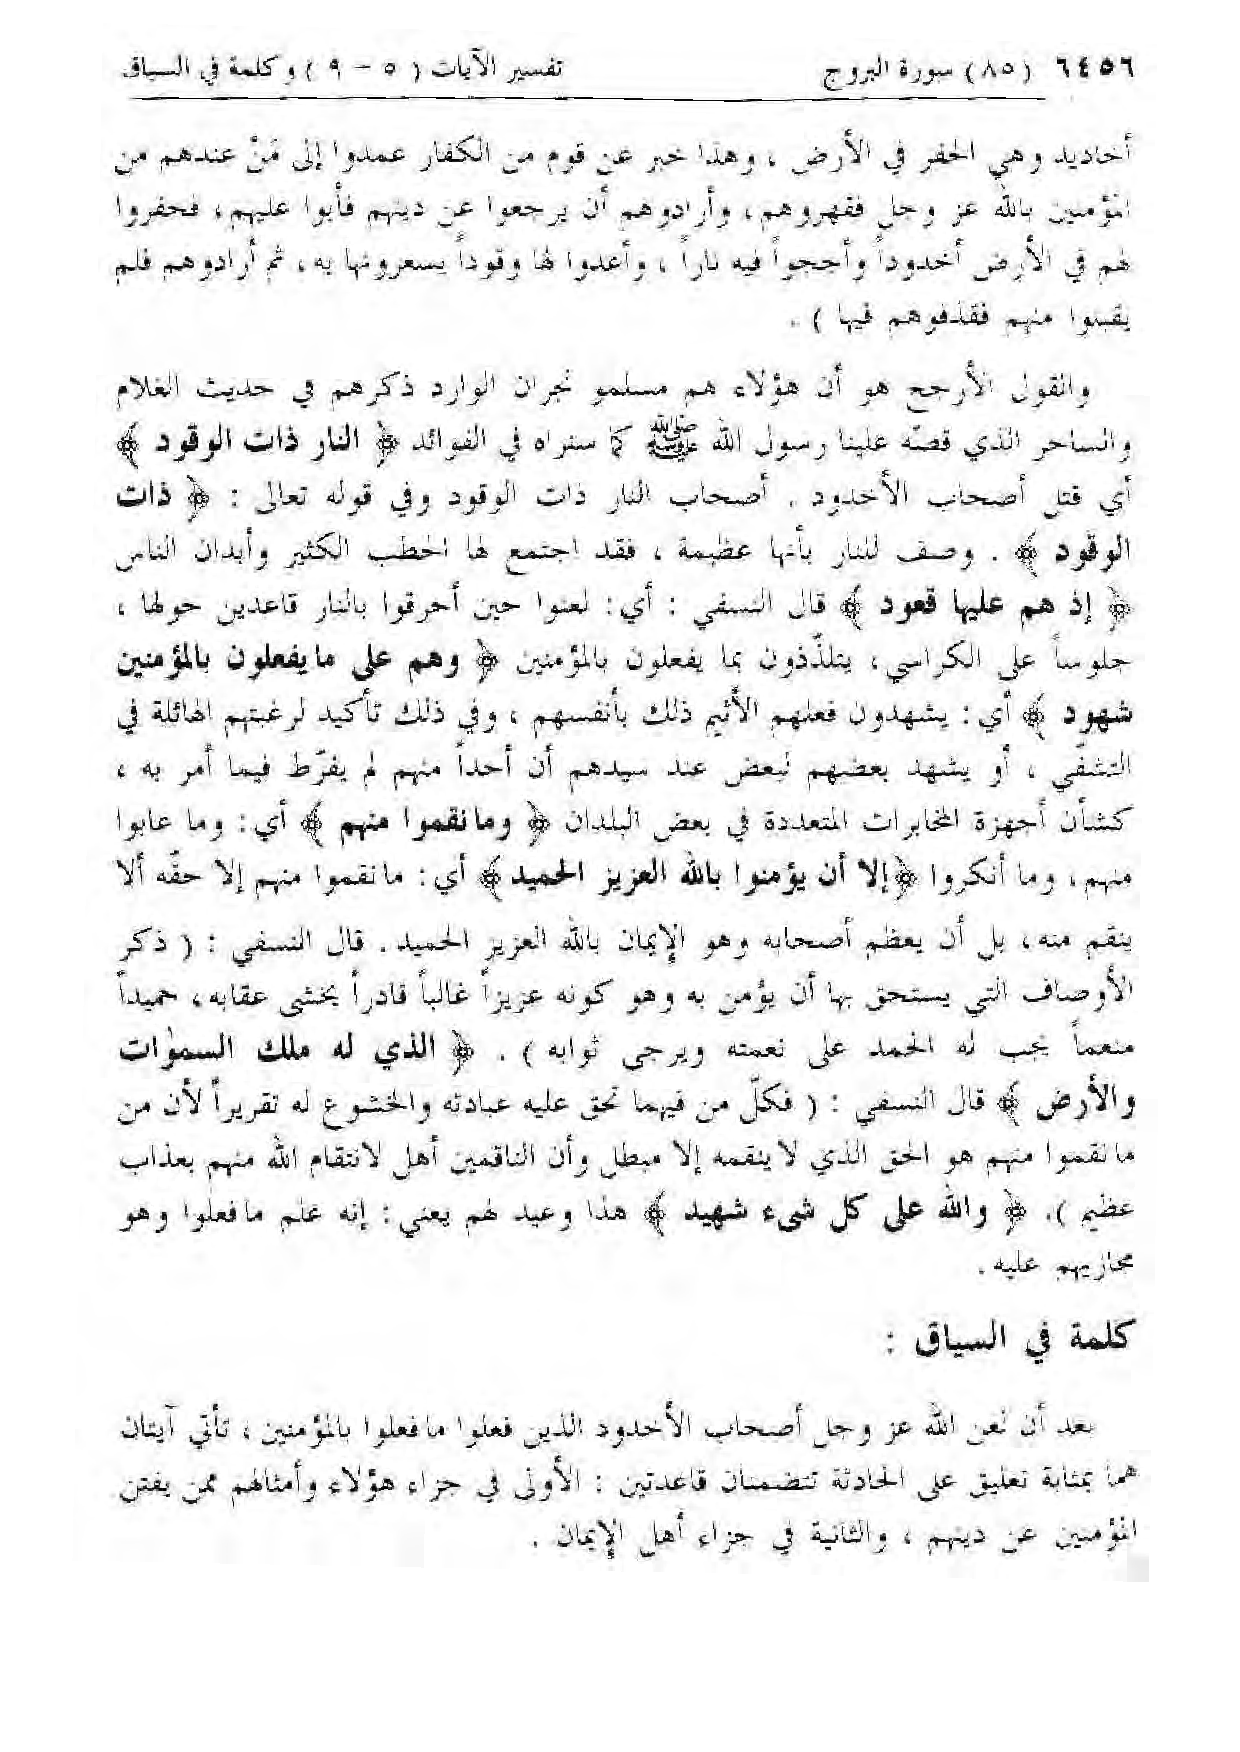 ٦٤٥٦ ( ٨٥ ) سورة البروج تفسير الآيات ( ٥ - ٩ ) وكلمة في السياق
أخاديد وهي الحفر في الأرض ، وهذا خبر عن قوم من الكفار عمدوا إلى مَنْ عندهم من
المؤمنين بالله عز وجل فقهروهم ، وأرادوهم أن يرجعوا عن دينهم فأبوا عليهم ، فحفروا
لهم في الأرض أخدوداً وأججوا فيه ناراً ، وأعدوا لها وقوداً يسعرونها به ، ثم أرادوهم فلم
يقبلوا منهم فقذفوهم فيها ) .
والقول الأرجح هو أن هؤلاء هم مسلمو نجران الوارد ذكرهم في حديث الغلام
والساحر الذي قصّه علينا رسول الله ﷺ كما سنراه في الفوائد ﴿ النار ذات الوقود ﴾
أي قتل أصحاب الأخدود . أصحاب النار ذات الوقود وفي قوله تعالى : ﴿ ذات
الوقود ﴾ . وصف للنار بأنها عظيمة ، فقد اجتمع لها الحطب الكثير وأبدان الناس
﴿ إذ هم عليها قعود ﴾ قال النسفي : أي : لعنوا حين أحرقوا بالنار قاعدين حولها ،
جلوساً على الكراسي ، يتلذّذون بما يفعلون بالمؤمنين ﴿ وهم على ما يفعلون بالمؤمنين
شهود ﴾ أي : يشهدون فعلهم الأثيم ذلك بأنفسهم ، وفي ذلك تأكيد لرغبتهم الهائلة في
التشفّي ، أو يشهد بعضهم لبعض عند سيدهم أن أحداً منهم لم يفرّط فيما أمر به ،
كشأن أجهزة المخابرات المتعددة في بعض البلدان ﴿ وما نقموا منهم ﴾ أي : وما عابوا
منهم ، وما أنكروا ﴿ إلا أن يؤمنوا بالله العزيز الحميد ﴾ أي : ما نقموا منهم إلا حقّه ألا
ينقم منه ، بل أن يعظم أصحابه وهو الإيمان بالله العزيز الحميد . قال النسفي : ( ذكر
الأوصاف التي يستحق بها أن يؤمن به وهو كونه عزيزاً غالباً قادراً يخشى عقابه ، حميداً
منعماً يجب له الحمد على نعمته ويرجى ثوابه ) . ﴿ الذي له ملك السمٰوات
والأرض ﴾ قال النسفي : ( فكلّ من فيهما تحق عليه عبادته والخشوع له تقريراً لأن من
ما نقموا منهم هو الحق الذي لا ينقمه إلا مبطل وأن الناقمين أهل لانتقام الله منهم بعذاب
عظيم ). ﴿ والله على كل شيء شهيد ﴾ هذا وعيد لهم يعني : إنه علم ما فعلوا وهو
مجازيهم عليه .
كلمة في السياق :
بعد أن لعن الله عز وجل أصحاب الأخدود الذين فعلوا ما فعلوا بالمؤمنين ، تأتي آيتان
هما بمثابة تعليق على الحادثة تتضمنان قاعدتين : الأولى في جزاء هؤلاء وأمثالهم ممن يفتن
المؤمنين عن دينهم ، والثانية في جزاء أهل الإيمان .